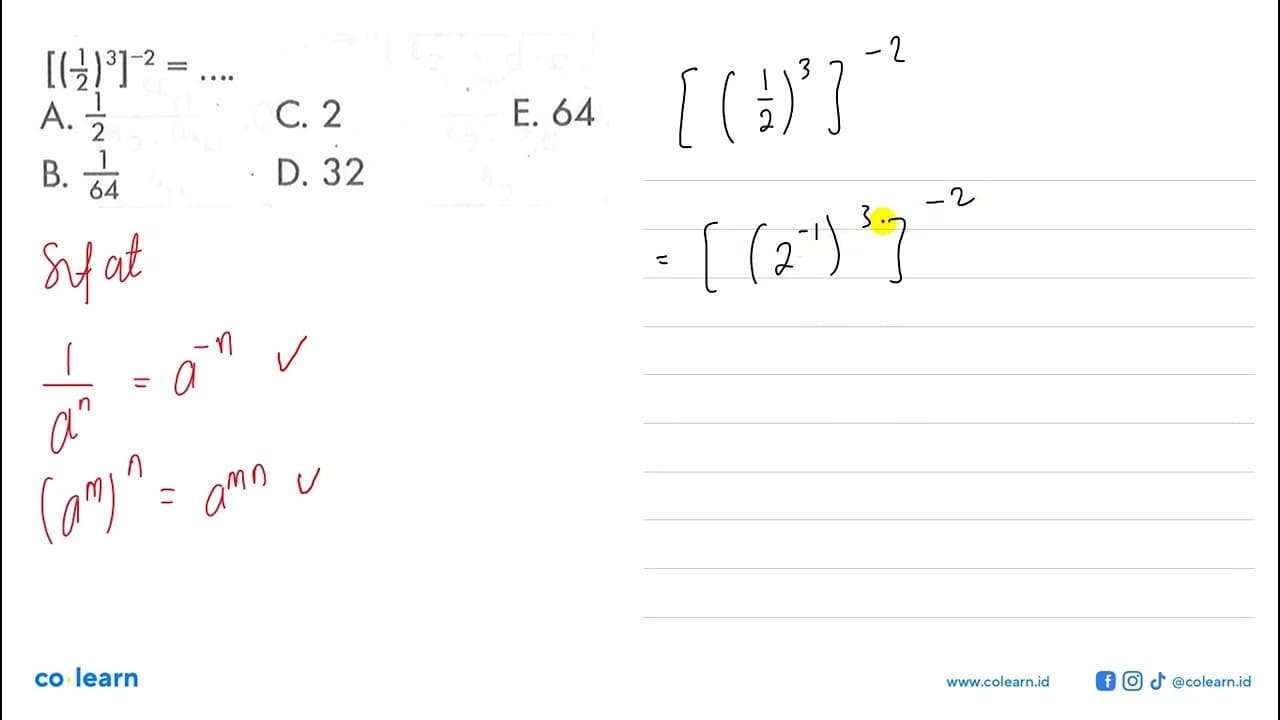 [(1/2)³]⁻² = ....
A. 1/2 C. 2 E. 64
B. 1/64 D. 32
Sifat
1/aⁿ = a⁻ⁿ ✓
(aᵐ)ⁿ = aᵐⁿ ✓
[(1/2)³]⁻²
= [(2⁻¹)³]⁻²
co learn
www.colearn.id @colearn.id